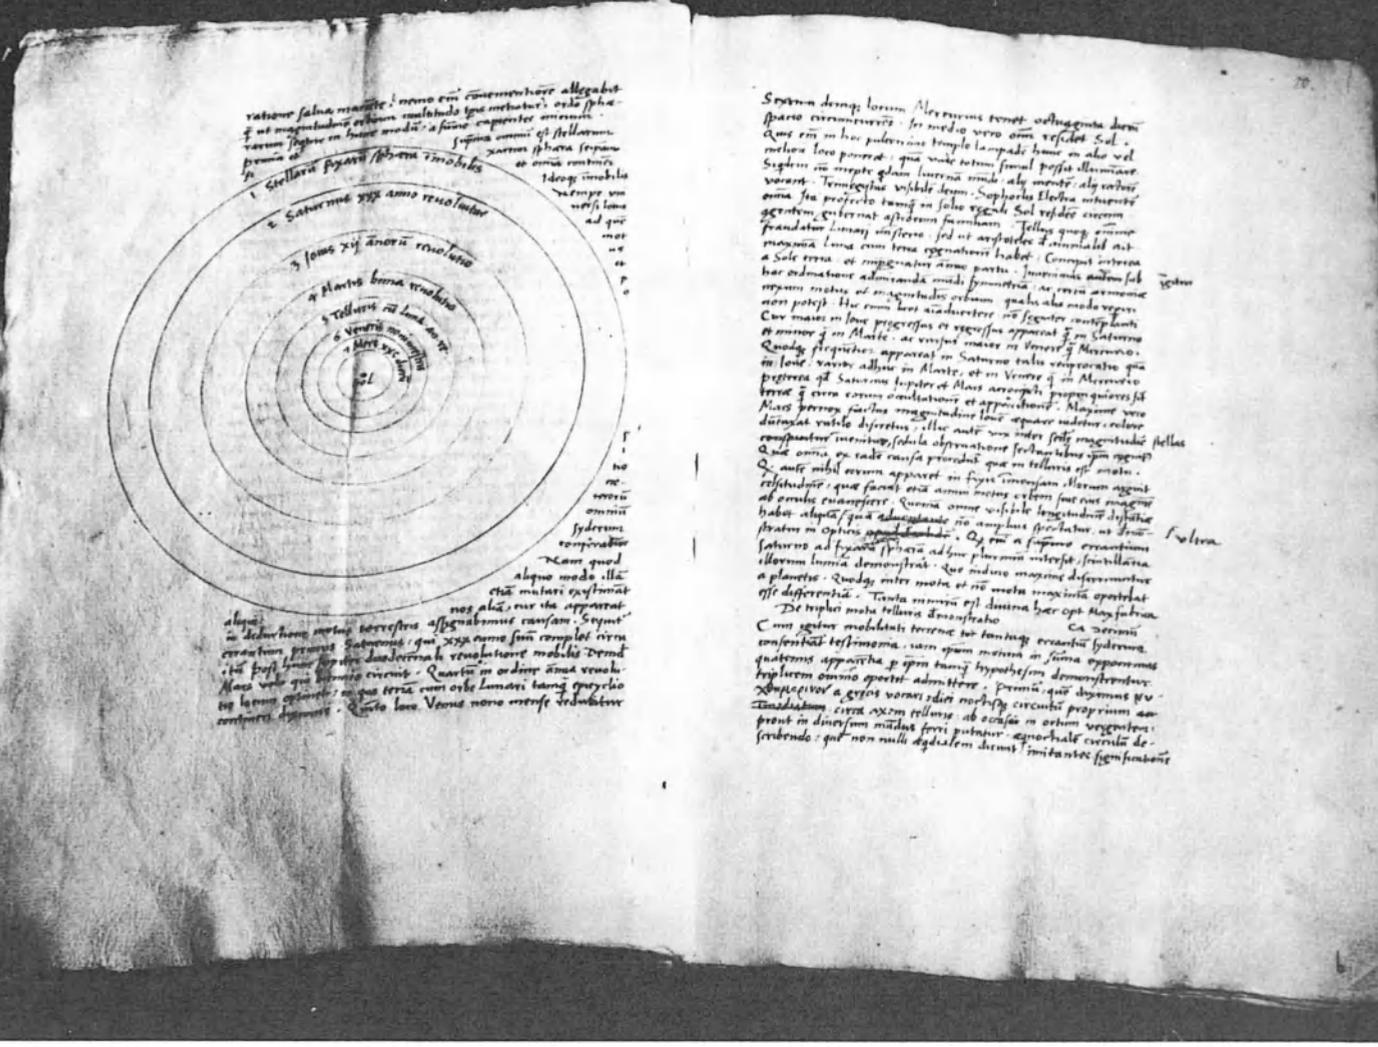 ratione salva manēte, nemo em̄ cōvenientiorē allegabit
q̄ ut magnitudinē orbium multitudo tp̄is metiatur, ordo sphæ-
rarum sequitur in hunc modū, a sum̄o capientes initium.
prima et suprema omniū est stellarum
fixarum sphæra seipsam
et omnia continēs
Ideoq̨ īmobilis
nempe uni
versi locus
ad quē
mot
us
et
p
o
1 Stellarū fixarū sphæra īmobilis
2 Saturnus xxx anno revolvitur
3 Iovis xij annorū revolutio
4 Martis bima revolutio
5 Telluris cū Luna an re
6 Veneris nonimestris
7 Merc xxc dierū
Sol
f
tio
ce-
terorū
omniū
syderum
conferatur
Nam quod
aliquo modo illā
etiā mutari existimāt
aliqui: nos aliā, cur ita appareat
in deductione motus terrestris assignabimus causam. Sequit
errantium primus Saturnus, qui XXX anno suū complet circu
itū post hunc Jupiter duodecennali revolutione mobilis Demū
Mars volvit qui biennio circuit. Quartū in ordine annua revolu-
tio locum optinet: in quo terrā cum orbe Lunari tamq̄ epicyclio
contineri diximus. Quinto loco Venus nono mense reducitur
20.
Sextum deniq̨ locum Mercurius tenet octuaginta dierū
spacio circumcurrēs. In medio vero omī residet Sol.
Quis em̄ in hoc pulcerimo templo lampadē hanc in alio vel
meliori loco poneret: quā unde totum simul possit illuminare.
Siquidem nō inepte quidam lucernā mūdi: alij mentē: alij rectorē
vocant. Trimegistus visibilē deum. Sophoclis Electra intuentē
omīa Ita profecto tamq̄ in solio regali Sol residēs circum
agentem gubernat astrorum familiam. Tellus quoq̨ minime
fraudatur Lunari ministerio. sed ut aristoteles de animalib ait
maximā Luna cum terra cognationē habet. Concipit interea
a Sole terra. et impregnatur annuo partu. Invenimus īgitur sub
hac ordinatione admirandā mūdi symmetriā: ac certū armoniæ
nexum motus et magnitudīs orbium: qualis alio modo reperiri
non potest. Hic enim licet aīadvertere nō segniter contēplanti
Cur maior in Iove progressus et regressus appareat q̄ in Saturno
et minor q̄ in Marte. ac rursus maior in Venere q̄ Mercurio.
Quodq̨ frequētior appareat in Saturno talis reciprocatio quā
in Iove. rarior adhuc in Marte, et in Venere q̄ in Mercurio
præterea qd Saturnus Jupiter et Mars acronycti propinquiores sīt
terræ q̄ circa eorum occultationē et apparitionē. Maxime vero
Mars pernox factus magnitudine Iovē æquare videtur, colore
dūtaxat rutilo discretus, illic autē vix inter secūdæ magnitudīs stellas
invenitur, sedula observatione sectantibus ipm̄ cognit
Quæ omīa ex eadē causa procedūt quæ in telluris est motu.
Q̨ autē nihil eorum apparet in fixis īmensam illorum arguit
celsitudinē, quæ faciat etiā annui motus orbem sive eius imaginē
ab oculis evanescere. Quoniā omne visibile longitudinē distātiæ
habet aliquā ultra quā nō amplius spectatur, ut demō-
stratur in Opticis. Q̨ em̄ a supremo errantium
Saturno ad fixarū sphærā adhuc plurimū intersit, scintillātia
illorum lumina demōstrāt. Quo indicio maxime discernuntur
a planetis. Quodq̨ inter mota et nō mota maximā oportebat
esse differentiā. Tanta nimirū est divina hæc Opt Max fabrica
De triplici motu telluris demonstratio Ca decimū
Cum igitur mobilitati terrenæ tot tantaq̨ errantiū syderum
consentiāt testimonia, iam ipsum motum in sum̄a exponemus
quatenus apparētia p̄ ipm̄ tamq̄ hypothesim demonstrentur.
triplicem omīno oportet admittere. primū: quē diximus νυ-
χθημερινον a græcis vocari: diei noctisq̨ circuitū proprium
circa axem telluris. ab occasu in ortum vergentem:
prout in diversum mūdus ferri putatur. æquinoctialē circulū de-
scribendo: quē non nulli æqdialem dicunt, imitantes significationē
b